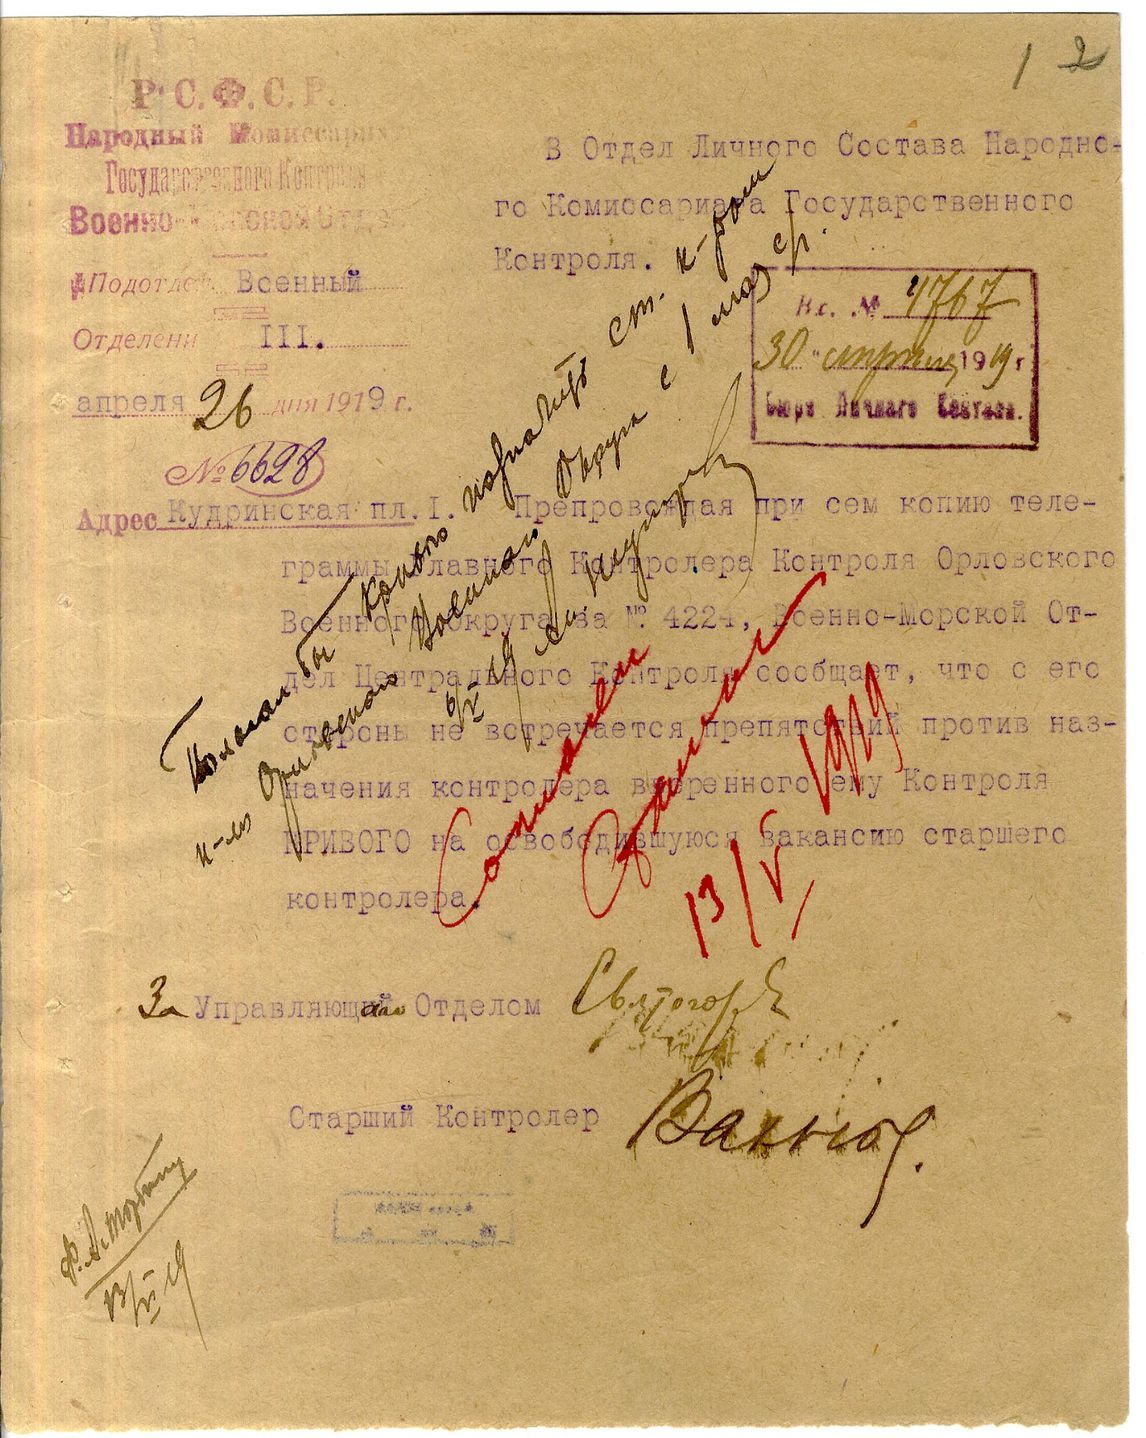 1 2
Р.С.Ф.С.Р.
Народный Комиссариат
Государственного Контроля
Военно-Морской Отдел
Подотдел Военный
Отделени III.
апреля 26 дня 1919 г.
№ 6628
Адрес Кудринская пл. I.
В Отдел Личного Состава Народно-
го Комиссариата Государственного
Контроля.
Вх. № 4767
30 "апреля 1919 г
Бюро Личного Состава.
Препровождая при сем копию теле-
граммы Главного Контролера Контроля Орловского
Военного Округа за № 4224, Военно-Морской От-
дел Центрального Контроля сообщает, что с его
стороны не встречается препятствий против наз-
начения контролера вверенного ему Контроля
КРИВОГО на освободившуюся вакансию старшего
контролера.
Полагал бы Кривого назначить ст. к-ром
к-ля Орловского Военного Округа с 1 мая с/г.
6/V 19
Согласен
13/V 1919
За Управляющаго Отделом
Старший Контролер
13/VI 19